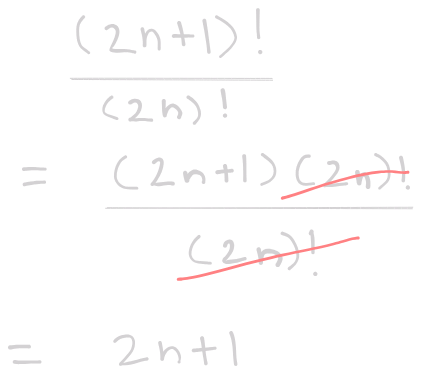 (2n+1)!
(2n)!
= (2n+1)(2n)!
(2n)!
= 2n+1